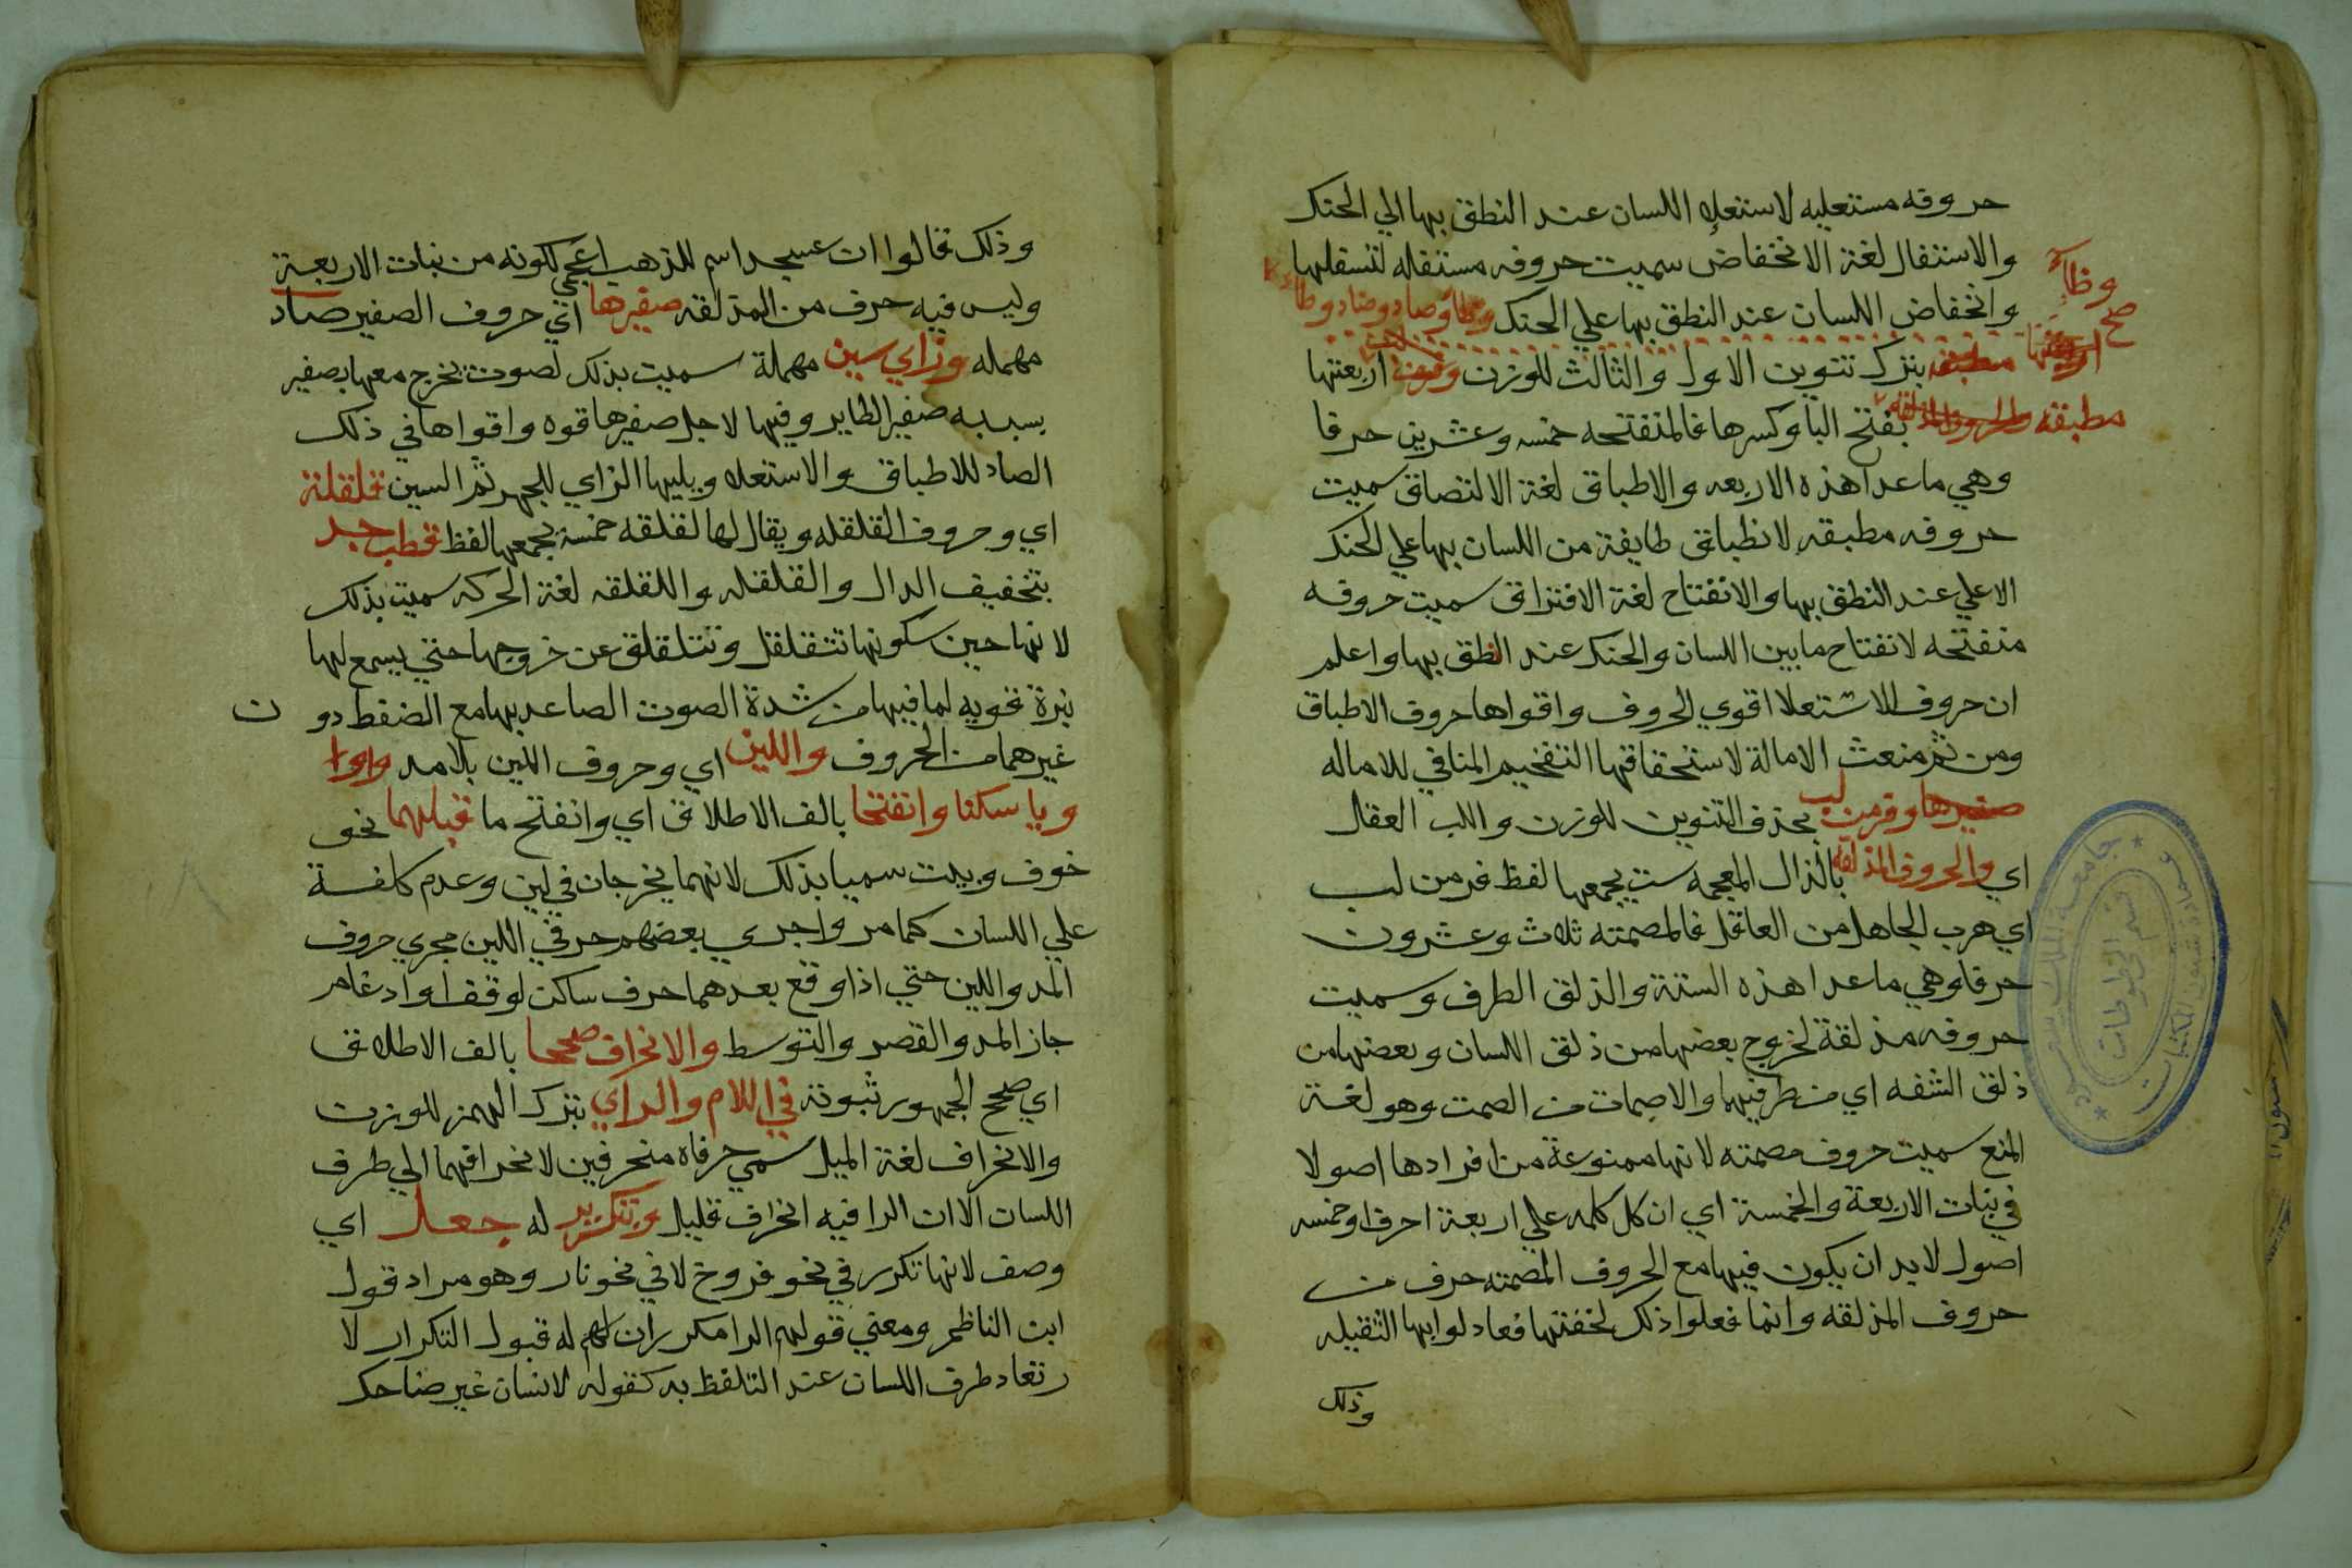 حروفه مستعليه لاستعلاء اللسان عند النطق بها الي الحنك
والاستفال لغة الانخفاض سميت حروفه مستفله لتسفلها
وانخفاض اللسان عند النطق بها علي الحنك وطاوصاد وضاد وطاء
وظاءٍ
صح
مطبقه بترك تنوين الاول والثالث للوزن اربعتها
مطبقه بفتح البا وكسرها فالمنفتحه خمسه وعشرين حرفا
وهي ماعدا هذه الاربعه والاطباق لغة الالتصاق سميت
حروفه مطبقه لانطباق طايفة من اللسان بها علي الحنك
الاعلي عند النطق بها والانفتاح لغة الافتراق سميت حروفه
منفتحه لانفتاح مابين اللسان والحنك عند النطق بها واعلم
ان حروف الاستعلا اقوي الحروف واقواها حروف الاطباق
ومن ثم منعت الامالة لاستحقاقها التفخيم المنافي للاماله
وفرمن لب بحذف التنوين للوزن واللب العقل
اي والحروف المذلقه بالذال المعجمه ست يجمعها لفظ فرمن لب
اي هرب الجاهل من العاقل فالمصمته ثلاث وعشرون
حرفا وهي ماعدا هذه الستة والذلق الطرف وسميت
حروفه مذلقة لخروج بعضها من ذلق اللسان وبعضها من
ذلق الشفه اي من طرفيهما والاصمات من الصمت وهو لغة
المنع سميت حروف مصمته لانها ممنوعة من افرادها اصولا
في بنات الاربعة والخمسة اي ان كل كلمه علي اربعة احرف اوخمسه
اصول لابد ان يكون فيها مع الحروف المصمته حرف من
حروف المذلقه وانما فعلوا ذلك لخفتها فعادلوا بها الثقيله
وذلك
جامعة الملك سعود
قسم المخطوطات
عمادة شئون المكتبات
وذلك قالوا ان عسجد اسم للذهب اعجمي لكونه من بنات الاربعة
وليس فيه حرف من المذلقه صفيرها اي حروف الصفير صاد
مهمله وزاي سين مهملة سميت بذلك لصوت يخرج معها بصفير
بسببه صفير الطاير وفيها لاجل صفيرها قوه واقواها في ذلك
الصاد للاطباق والاستعلا ويليها الزاي للجهر ثم السين قلقلة
اي وحروف القلقله ويقال لها لقلقه خمسة يجمعها لفظ قطب جد
بتخفيف الدال والقلقله واللقلقه لغة الحركه سميت بذلك
لانها حين سكونها تتقلقل وتتلقلق عن خروجها حتي يسمع لها
نبرة قويه لما فيها من شدة الصوت الصاعد بها مع الضغط دون
غيرهما من الحروف واللين اي وحروف اللين بلامد واوا
ويا سكنا وانفتحا بالف الاطلاق اي وانفتح ما قبلهما نحو
خوف وبيت سميا بذلك لانهما يخرجان في لين وعدم كلفة
علي اللسان كما مر واجري بعضهم حرفي اللين مجري حروف
المد واللين حتي اذا وقع بعدهما حرف ساكن لوقف او ادغام
جاز المد والقصر والتوسط والانحراف صححا بالف الاطلاق
اي صحح الجمهور ثبوته في اللام والراي بترك الهمز للوزن
والانحراف لغة الميل سمي حرفاه منحرفين لانحرافهما الي طرف
اللسان الا ان الرا فيه انحراف قليل وبتكرير له جعل اي
وصف لانها تكرر في نحو فروخ لا في نحو نار وهو مراد قول
ابن الناظم ومعني قولهم الرا مكرر ان له قبول التكرار لا
رتعاد طرف اللسان عند التلفظ به كقوله لانسان غير ضاحك